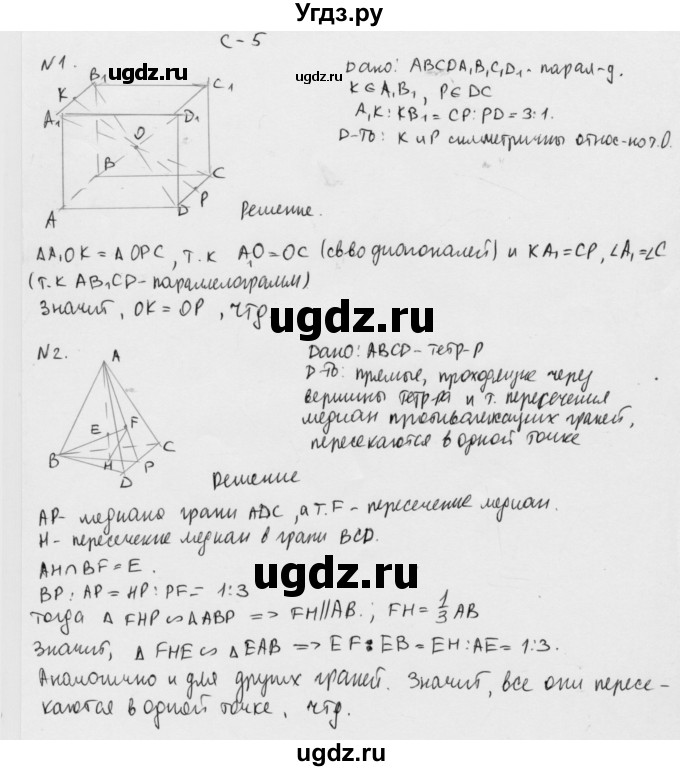 Угдз.ру
ugdz.ru
С-5
ugdz.ru
ugdz.ru
N1.
Дано: ABCDA₁B₁C₁D₁ - парал-д.
K∈A₁B₁, P∈DC
A₁K:KB₁=CP:PD=3:1.
Д-ть: K и P симметричны относ-но т.O.
B₁
C₁
K
A₁
D₁
O
B
C
P
A
D
Решение.
ΔA₁OK=ΔOPC, т.к A₁O=OC (св-во диагоналей) и KA₁=CP, ∠A₁=∠C
(т.к AB₁CD-параллелограмм)
Значит, OK=OP, чтд
ugdz.ru
N2.
Дано: ABCD-тетр-р
Д-ть: прямые, проходящие через
вершины тетр-ра и т. пересечения
медиан противолежащих граней,
пересекаются в одной точке
A
E
F
B
H
C
D
P
Решение
AP- медиана грани ADC, а т.F- пересечение медиан.
H- пересечение медиан в грани BCD.
AH∩BF=E.
BP:AP=HP:PF=1:3
ugdz.ru
тогда Δ FHP ∽ ΔABP => FH||AB.; FH=1/3 AB
Значит, Δ FHE ∽ Δ EAB => EF:EB=EH:AE=1:3.
Аналогично и для других граней. Значит, все они пересе-
каются в одной точке, чтд.
ugdz.ru
ugdz.ru